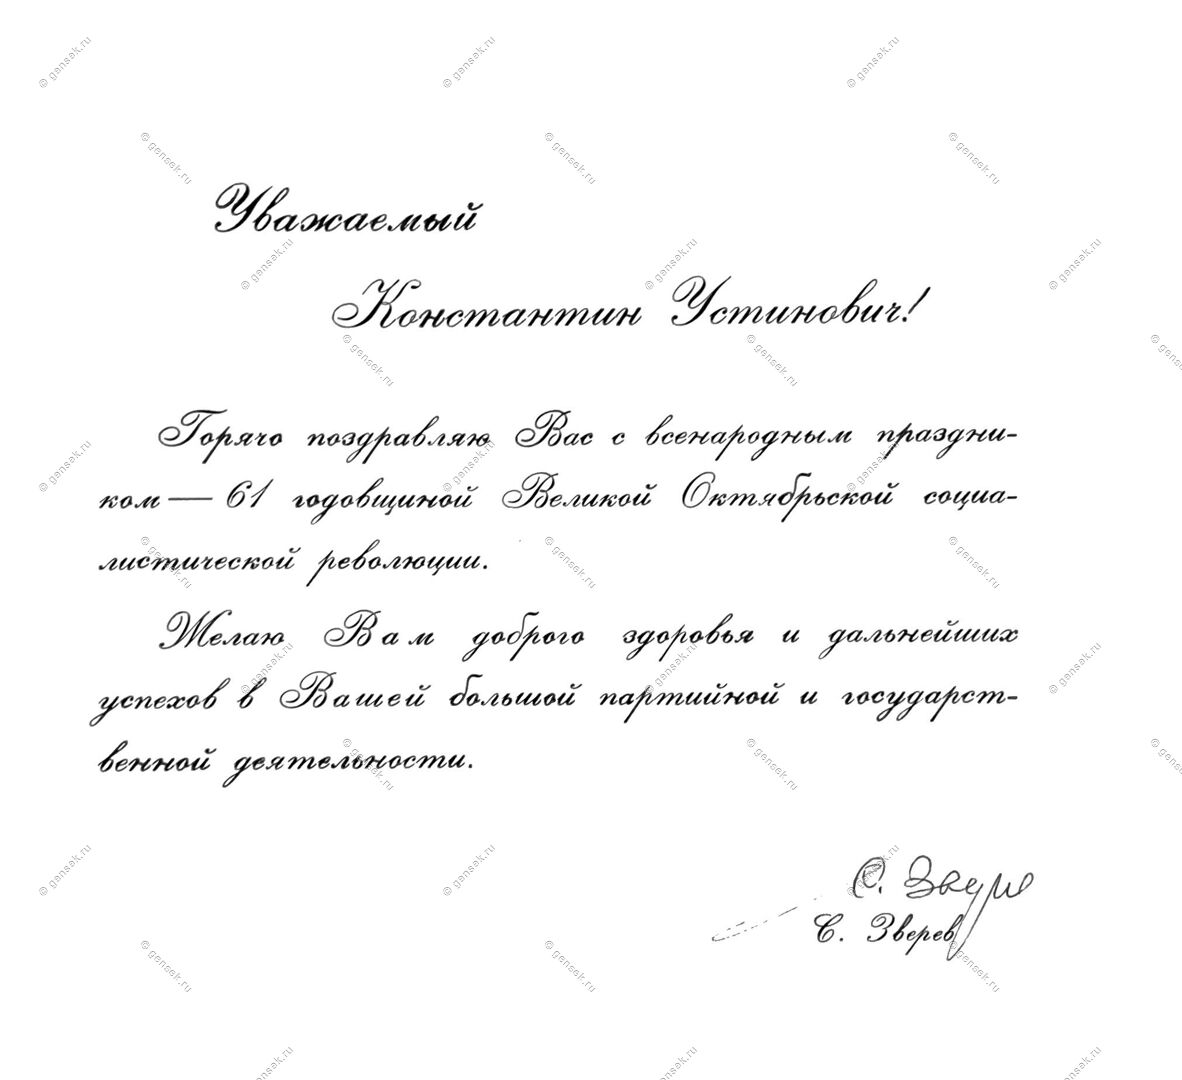 Уважаемый
Константин Устинович!
Горячо поздравляю Вас с всенародным праздни-
ком — 61 годовщиной Великой Октябрьской социа-
листической революции.
Желаю Вам доброго здоровья и дальнейших
успехов в Вашей большой партийной и государст-
венной деятельности.
С. Зверев
С. Зверев
© gensek.ru